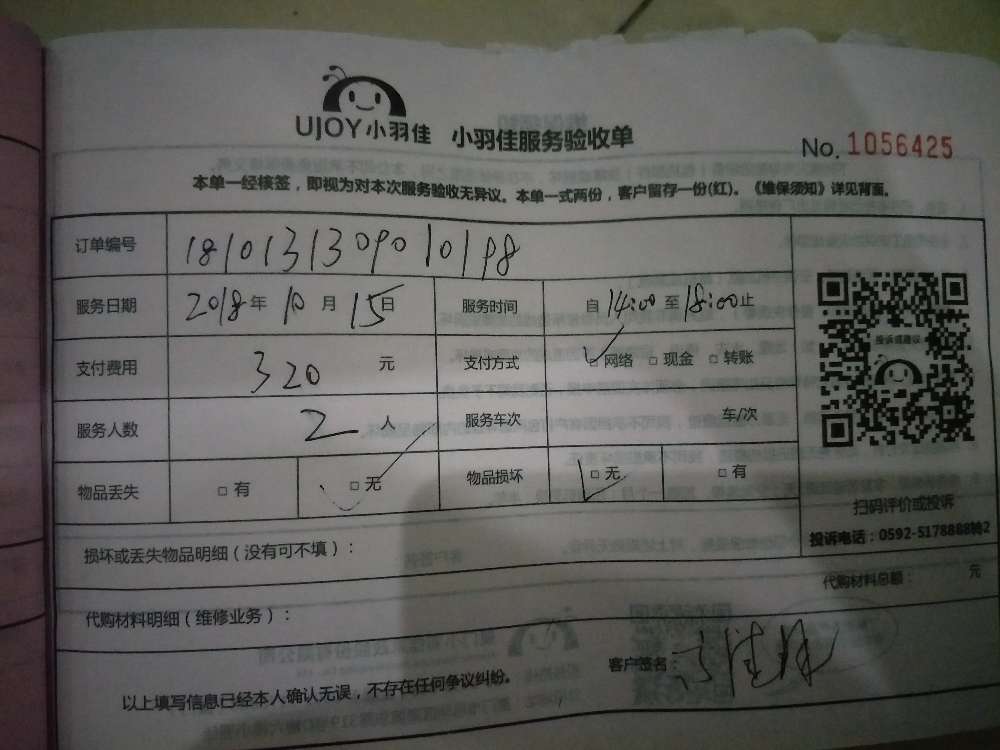 UJOY小羽佳 小羽佳服务验收单
No. 1056425
本单一经核签，即视为对本次服务验收无异议。本单一式两份，客户留存一份(红)。《维保须知》详见背面。
订单编号 1810131309010198
服务日期 2018年10月15日 服务时间 自14:00至18:00止
支付费用 320元 支付方式 □网络 □现金 □转账
服务人数 2人 服务车次 车/次
物品丢失 □有 □无 物品损坏 □无 □有
投诉或建议
扫码评价或投诉
投诉电话：0592-5178888转2
损坏或丢失物品明细（没有可不填）：
代购材料总额： 元
代购材料明细（维修业务）：
客户签名：
以上填写信息已经本人确认无误，不存在任何争议纠纷。